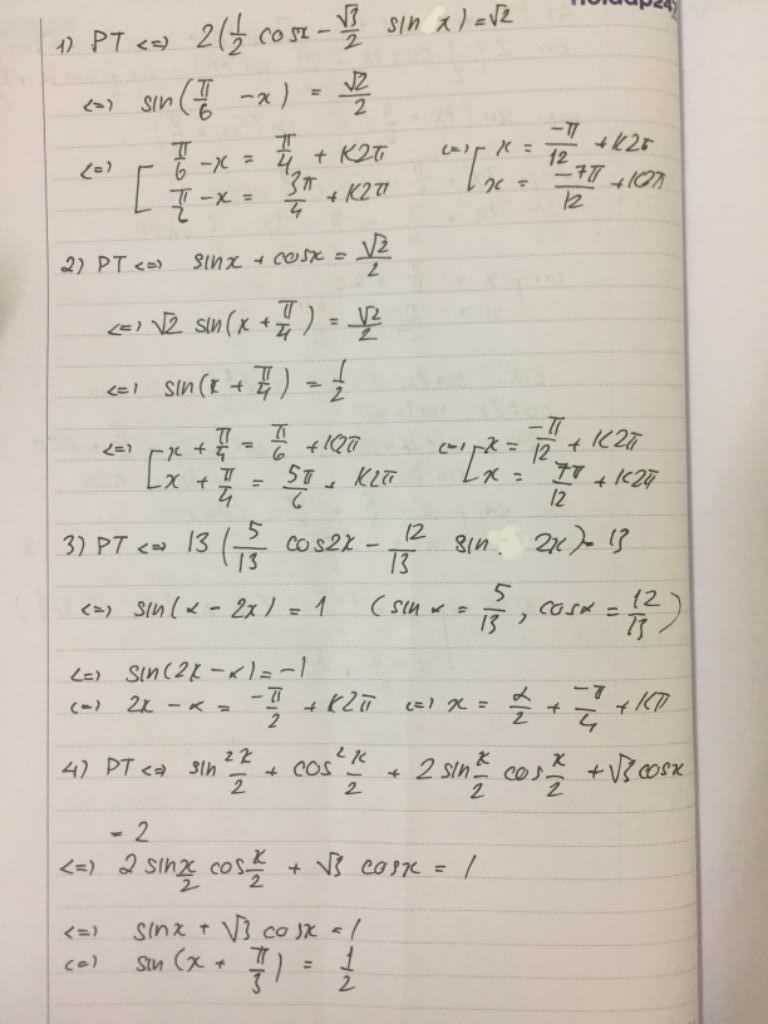 hoidap247
1) PT <=> 2(1/2 cosx - √3/2 sin x) = √2
<=> sin(π/6 - x) = √2/2
<=> [ π/6 - x = π/4 + K2π <=> [ x = -π/12 + K2π
π/2 - x = 3π/4 + K2π x = -7π/12 + K2π
2) PT <=> sinx + cosx = √2/2
<=> √2 sin(x + π/4) = √2/2
<=> sin(x + π/4) = 1/2
<=> [ x + π/4 = π/6 + K2π <=> [ x = -π/12 + K2π
x + π/4 = 5π/6 + K2π x = 7π/12 + K2π
3) PT <=> 13(5/13 cos2x - 12/13 sin 2x) = 13
<=> sin(α - 2x) = 1 (sin α = 5/13, cosα = 12/13)
<=> sin(2x - α) = -1
<=> 2x - α = -π/2 + K2π <=> x = α/2 + -π/4 + Kπ
4) PT <=> sin² x/2 + cos² x/2 + 2 sin x/2 cos x/2 + √3 cosx
= 2
<=> 2 sin x/2 cos x/2 + √3 cosx = 1
<=> sinx + √3 cosx = 1
<=> sin(x + π/3) = 1/2